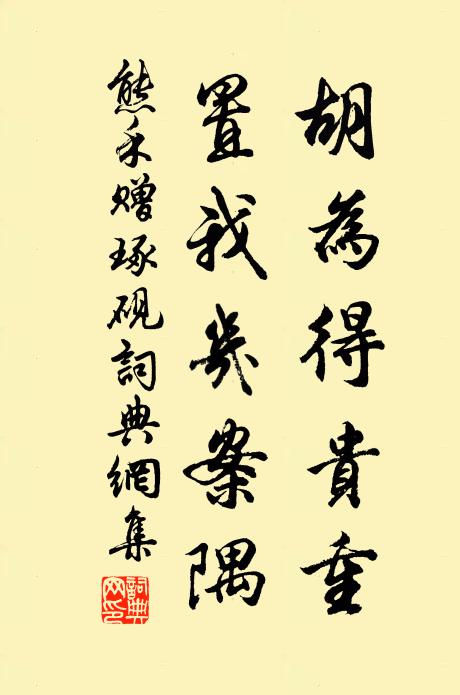 胡為得貴重
置我几案隅
熊禾贈琢硯詞典網集
詞典網印